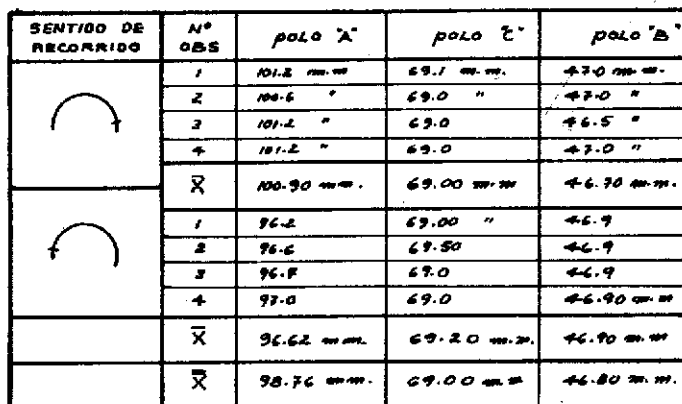 SENTIDO DE RECORRIDO Nº OBS POLO "A" POLO "C" POLO "B"
1 101.2 m.m 69.1 m.m. 47.0 m.m.
2 100.6 " 69.0 " 47.0 "
3 101.2 " 69.0 46.5 "
4 101.2 " 69.0 47.0 "
X̅ 100.90 mm. 69.00 m.m 46.70 m.m.
1 96.2 69.00 " 46.9
2 96.6 69.50 46.9
3 69.0 46.9
4 97.0 69.0 46.90 m.m
X̅ 96.62 mm. 69.20 m.m. 46.90 m.m
X̿ 98.76 mm. 69.00 m.m 46.80 m.m.